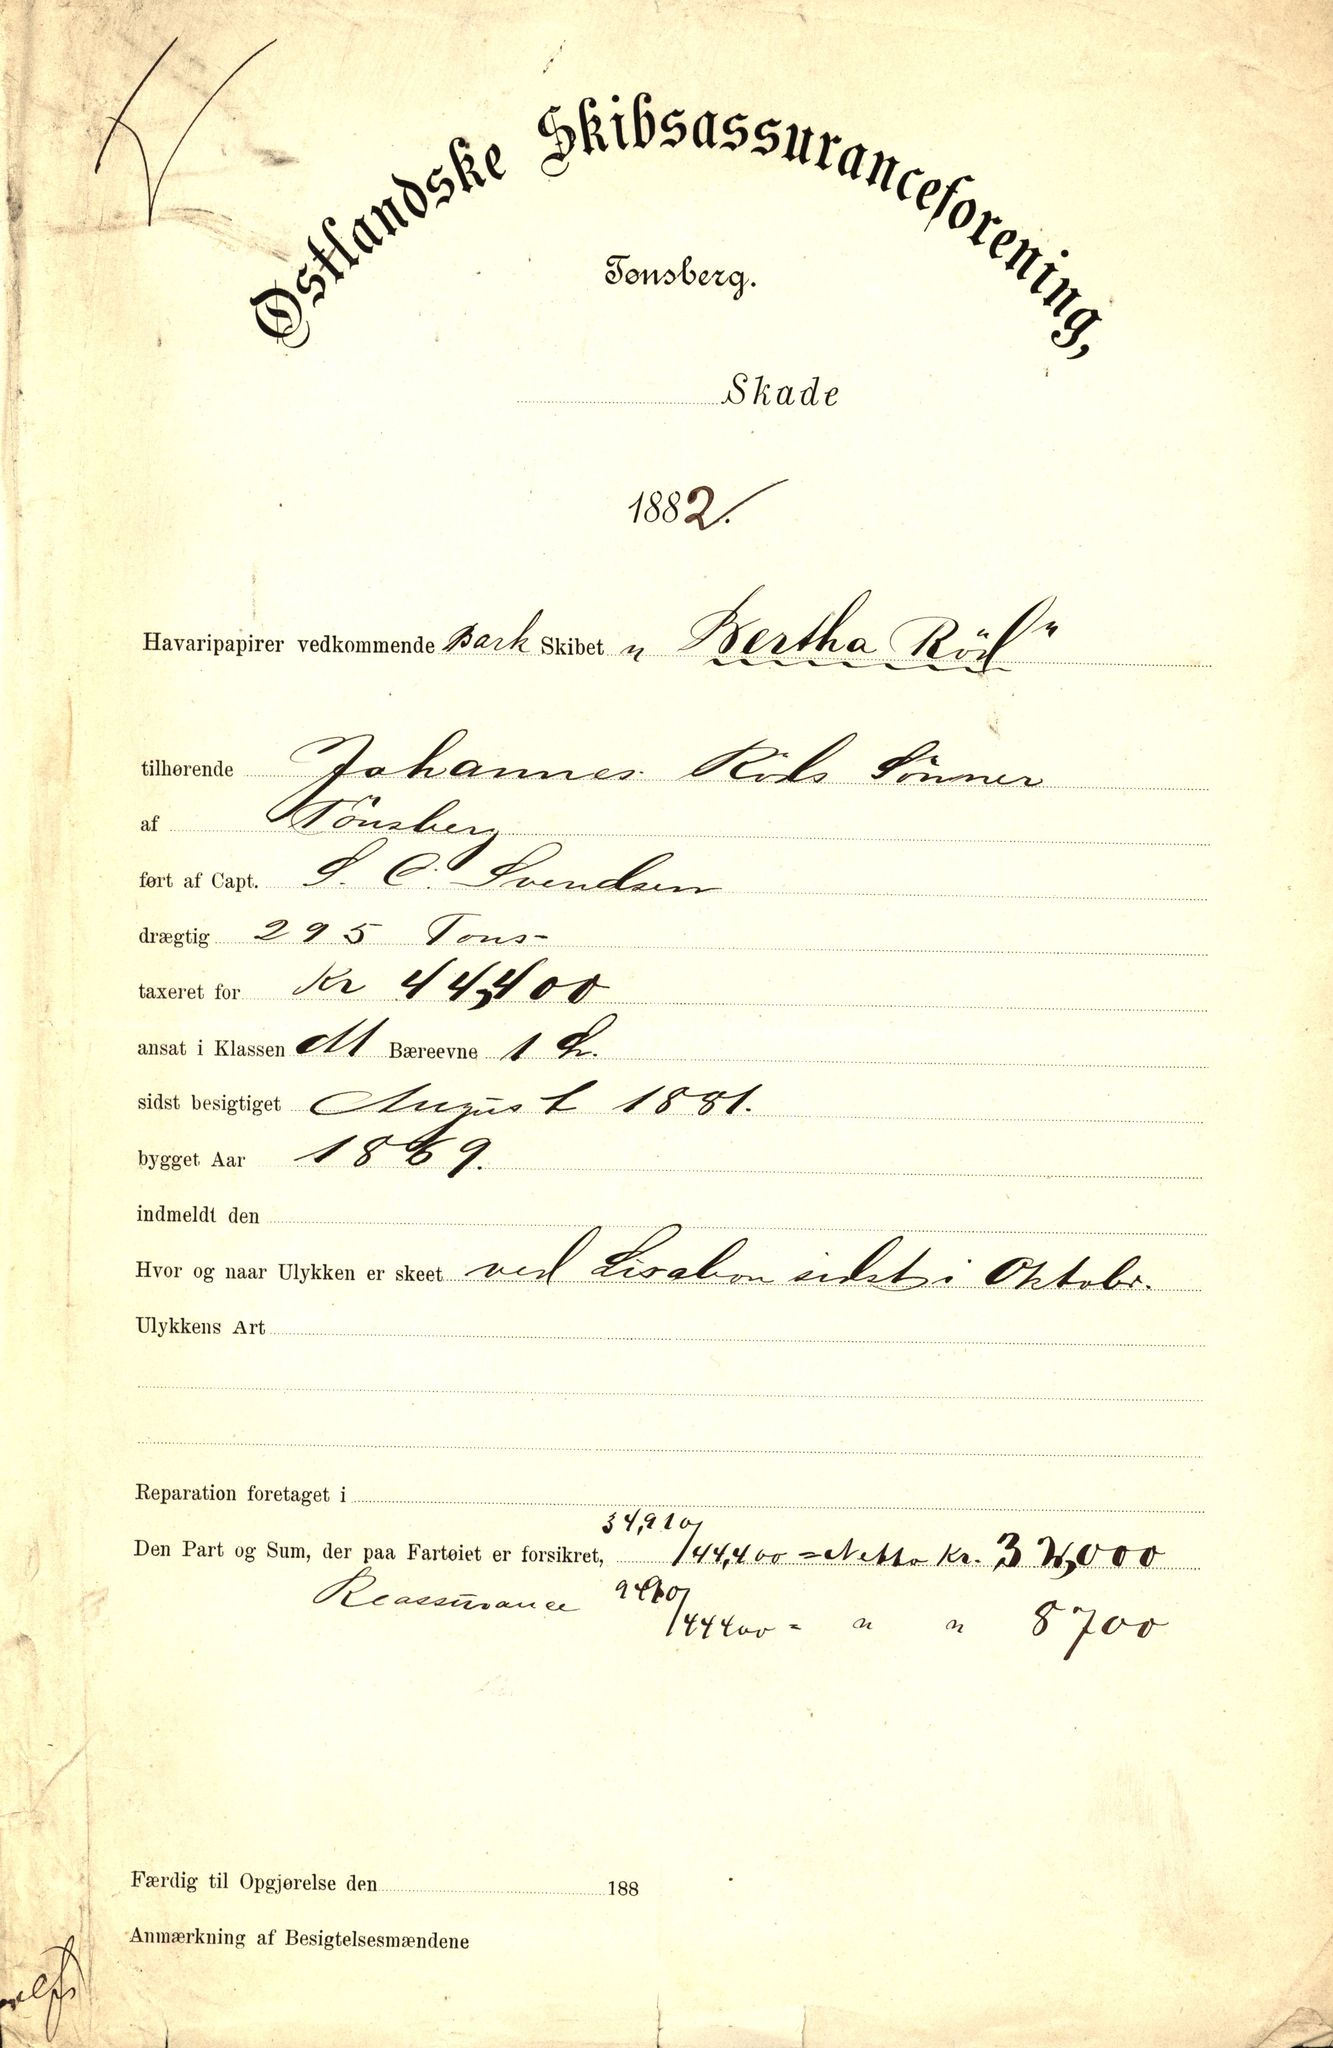 Østlandske Skibsassuranceforening,
Tønsberg.
Skade
1882.
Havaripapirer vedkommende Bark Skibet „ Bertha Röd"
tilhørende Johannes Röds Sönner
af Tönsberg
ført af Capt. S. C. Svendsen
drægtig 295 Tons
taxeret for Kr 44,400
ansat i Klassen A1 Bæreevne 1
sidst besigtiget August 1881.
bygget Aar 1869.
indmeldt den
Hvor og naar Ulykken er skeet ved Lisabon sidst i Oktobr.
Ulykkens Art
Reparation foretaget i
Den Part og Sum, der paa Fartøiet er forsikret, 34,910/44,400 = Netto Kr.
Reassurance /44400 = " " 8700
Færdig til Opgjørelse den 188
Anmærkning af Besigtelsesmændene